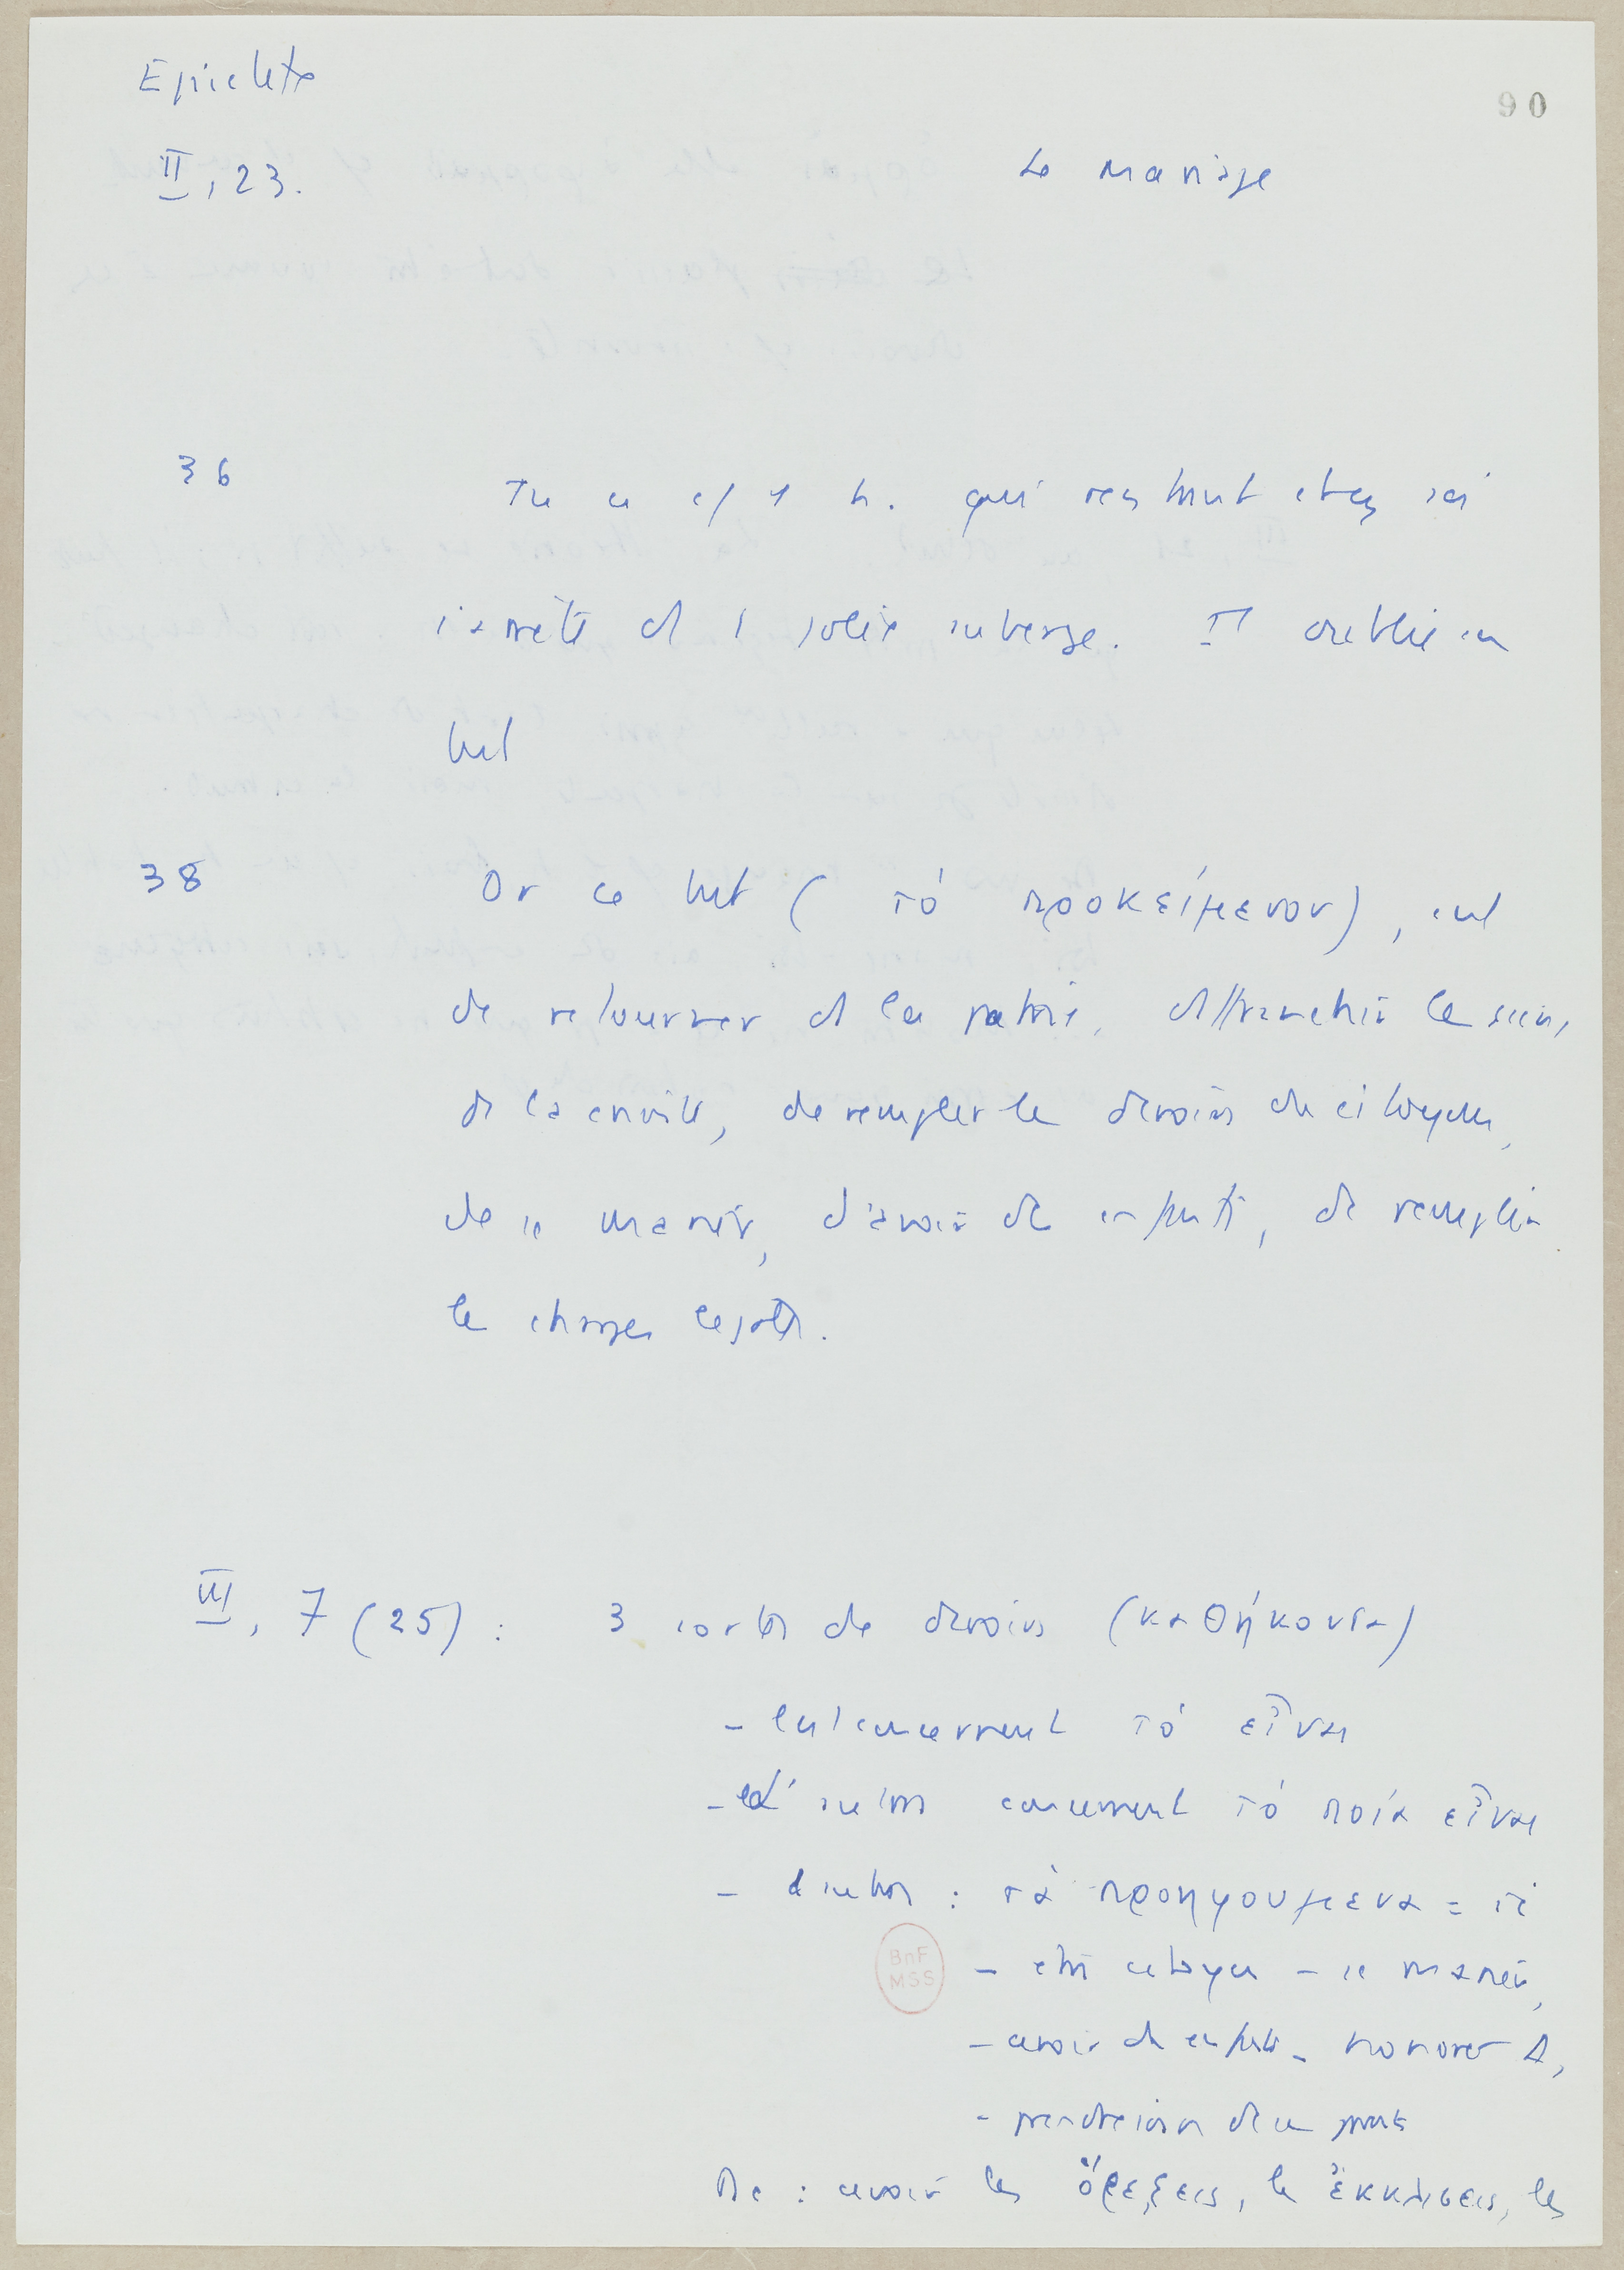 Epictete
90
II, 23.
Le mariage
36
Tu es c/ 1 h. qui rentrant chez soi
s'arrête ds 1 jolie auberge. Il oublie son
but
38
Or ce but (τό προκείμενον), c'est
de retourner ds la patrie, d'affranchir les siens
de la crainte, de remplir les devoirs du citoyen,
de se marier, d'avoir des enfants, de remplir
les charges
III, 7 (25) : 3 sortes de devoirs (καθήκοντα)
- les 1 concernent τό εἶναι
- d'autres concernent τό ποία εἶναι
- d'autres : τά προηγουμενα =
- être citoyen - se marier,
- avoir des enfants - honorer Δ,
- prendre soin de ses parents
De : avoir les ὄρεξεις, les ἔκκλισεις, les
BnF
MSS